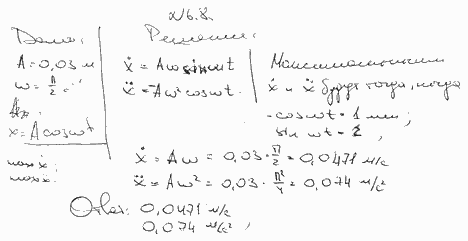 №6.8.
Дано:
A = 0,03 м
ω = π/2 с⁻¹
x = A cos ωt
max ẋ:
max ẍ:
Решение:
ẋ = Aω sin ωt
ẍ = -Aω² cos ωt.
Максимальными
ẋ и ẍ будут тогда, когда
-cos ωt = 1 или;
sin ωt = 1,
ẋ = Aω = 0,03 · π/2 = 0,0471 м/с
ẍ = Aω² = 0,03 · π²/4 = 0,074 м/с²
Ответ: 0,0471 м/с
0,074 м/с²,